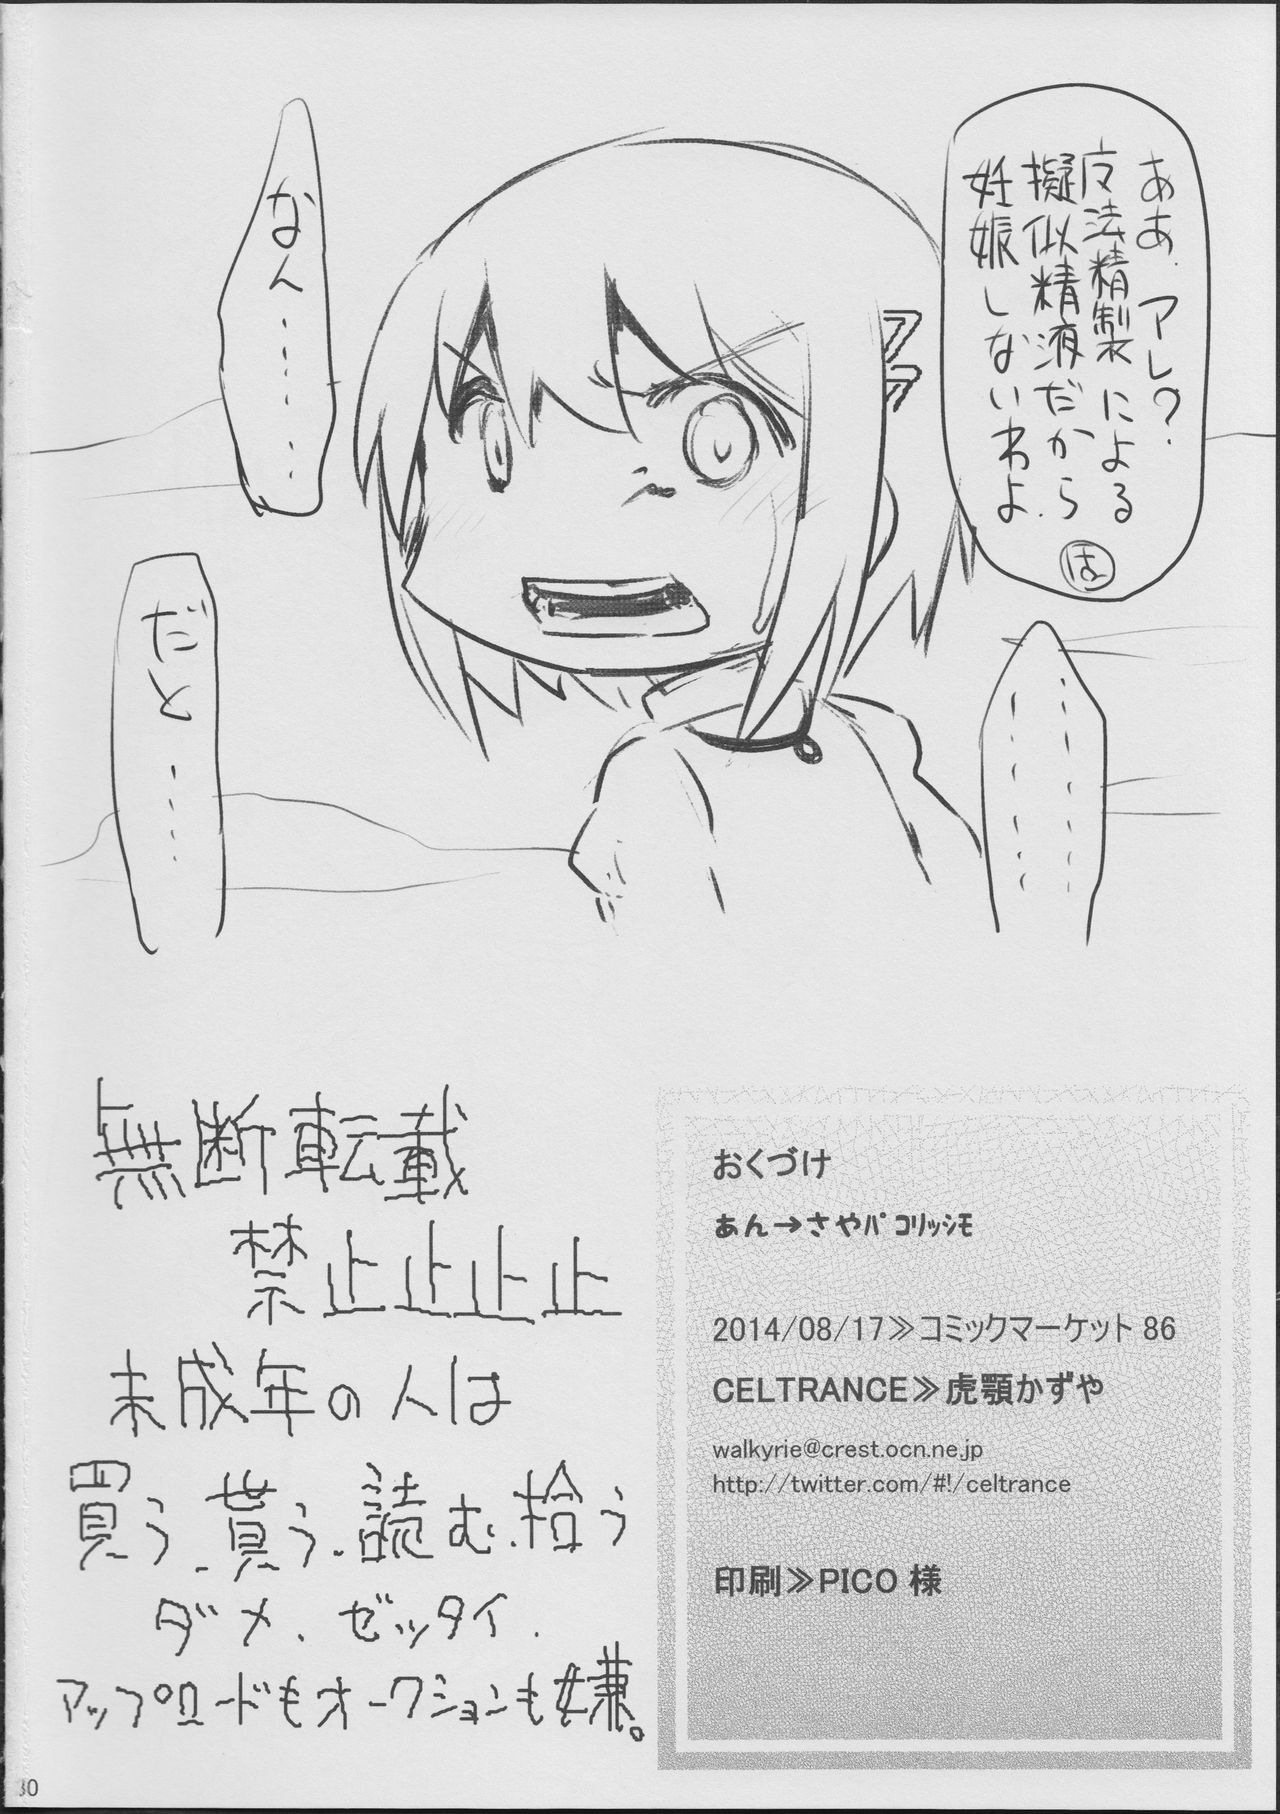 ああ、アレ？
魔法精製による
擬似精液だから
妊娠しないわよ。
ほ
ファ
なん……
だと……
…………
無断転載
禁止止止止
未成年の人は
買う、貰う、読む、拾う
ダメ、ゼッタイ、
アップロードもオークションも嫌。
おくづけ
あん→さやﾊﾟｺﾘｯｼﾓ
2014/08/17≫コミックマーケット86
CELTRANCE≫虎顎かずや
walkyrie@crest.ocn.ne.jp
http://twitter.com/#!/celtrance
印刷≫PICO 様
30